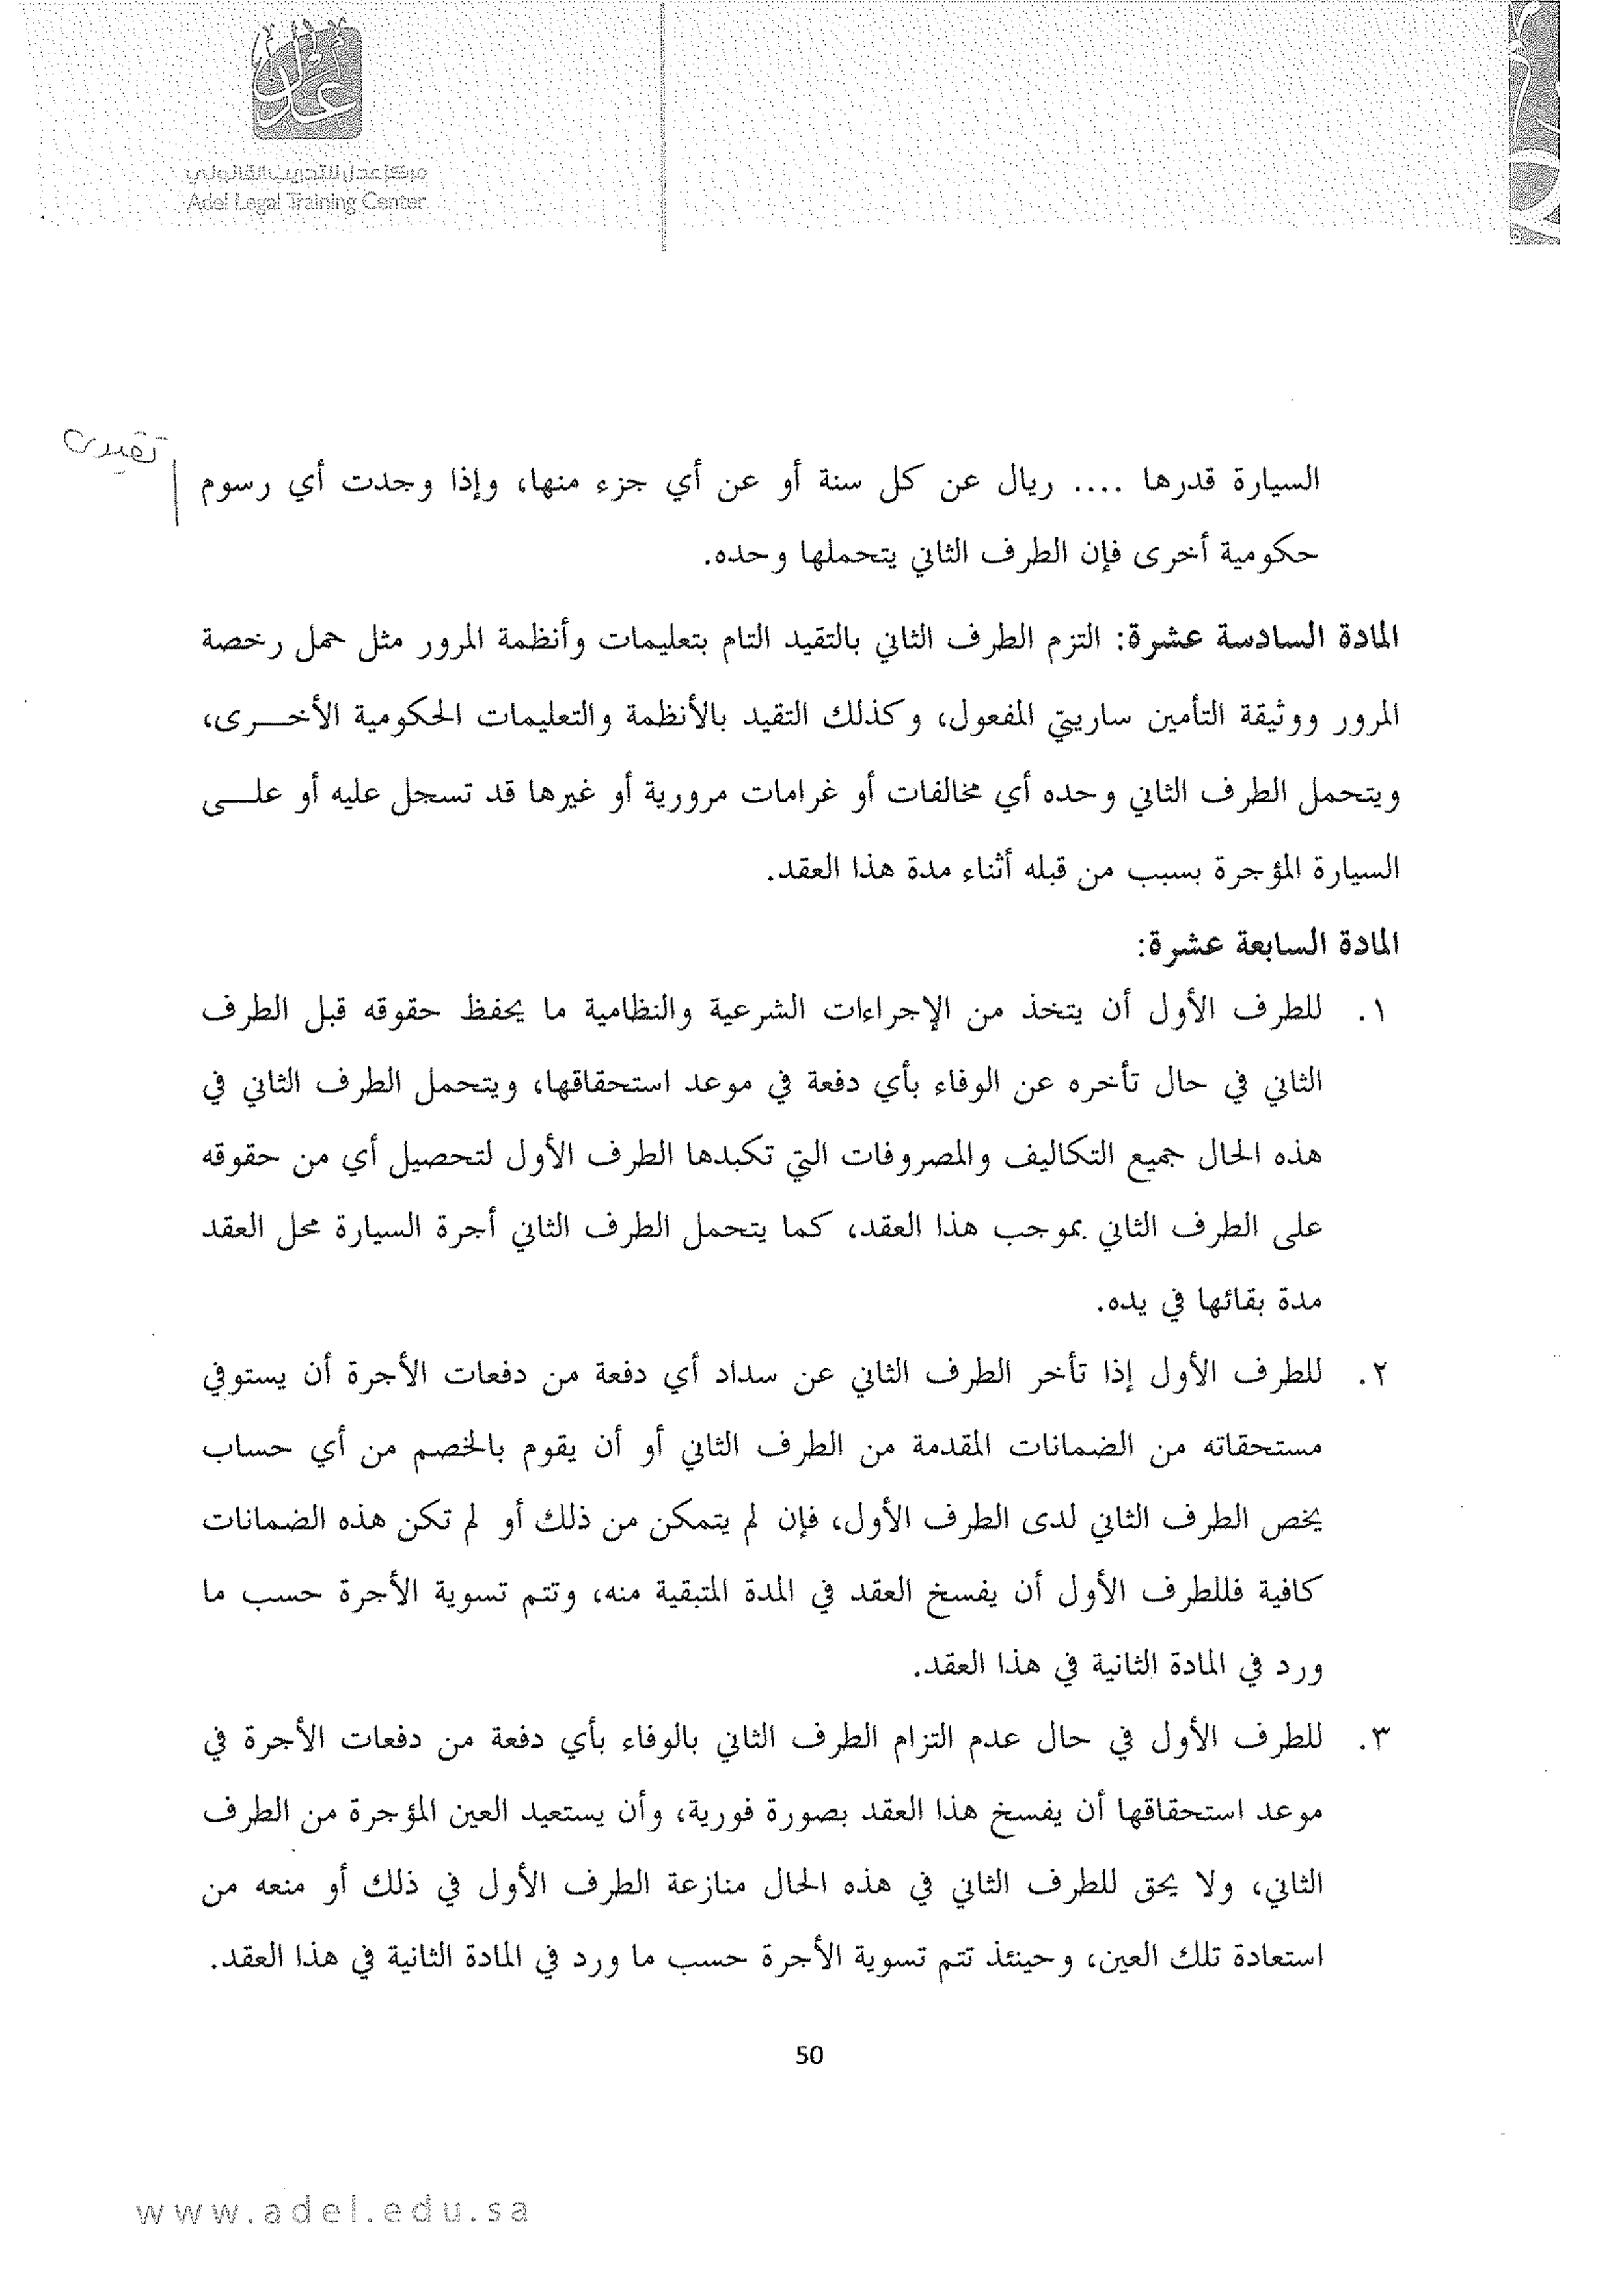 مركز عدل للتدريب القانوني
Adel Legal Training Center
السيارة قدرها .... ريال عن كل سنة أو عن أي جزء منها، وإذا وجدت أي رسوم
حكومية أخرى فإن الطرف الثاني يتحملها وحده.
المادة السادسة عشرة: التزم الطرف الثاني بالتقيد التام بتعليمات وأنظمة المرور مثل حمل رخصة
المرور ووثيقة التأمين ساريتي المفعول، وكذلك التقيد بالأنظمة والتعليمات الحكومية الأخــرى،
ويتحمل الطرف الثاني وحده أي مخالفات أو غرامات مرورية أو غيرها قد تسجل عليه أو علــى
السيارة المؤجرة بسبب من قبله أثناء مدة هذا العقد.
المادة السابعة عشرة:
١. للطرف الأول أن يتخذ من الإجراءات الشرعية والنظامية ما يحفظ حقوقه قبل الطرف
الثاني في حال تأخره عن الوفاء بأي دفعة في موعد استحقاقها، ويتحمل الطرف الثاني في
هذه الحال جميع التكاليف والمصروفات التي تكبدها الطرف الأول لتحصيل أي من حقوقه
على الطرف الثاني بموجب هذا العقد، كما يتحمل الطرف الثاني أجرة السيارة محل العقد
مدة بقائها في يده.
٢. للطرف الأول إذا تأخر الطرف الثاني عن سداد أي دفعة من دفعات الأجرة أن يستوفي
مستحقاته من الضمانات المقدمة من الطرف الثاني أو أن يقوم بالخصم من أي حساب
يخص الطرف الثاني لدى الطرف الأول، فإن لم يتمكن من ذلك أو لم تكن هذه الضمانات
كافية فللطرف الأول أن يفسخ العقد في المدة المتبقية منه، وتتم تسوية الأجرة حسب ما
ورد في المادة الثانية في هذا العقد.
٣. للطرف الأول في حال عدم التزام الطرف الثاني بالوفاء بأي دفعة من دفعات الأجرة في
موعد استحقاقها أن يفسخ هذا العقد بصورة فورية، وأن يستعيد العين المؤجرة من الطرف
الثاني، ولا يحق للطرف الثاني في هذه الحال منازعة الطرف الأول في ذلك أو منعه من
استعادة تلك العين، وحينئذ تتم تسوية الأجرة حسب ما ورد في المادة الثانية في هذا العقد.
50
www.adel.edu.sa